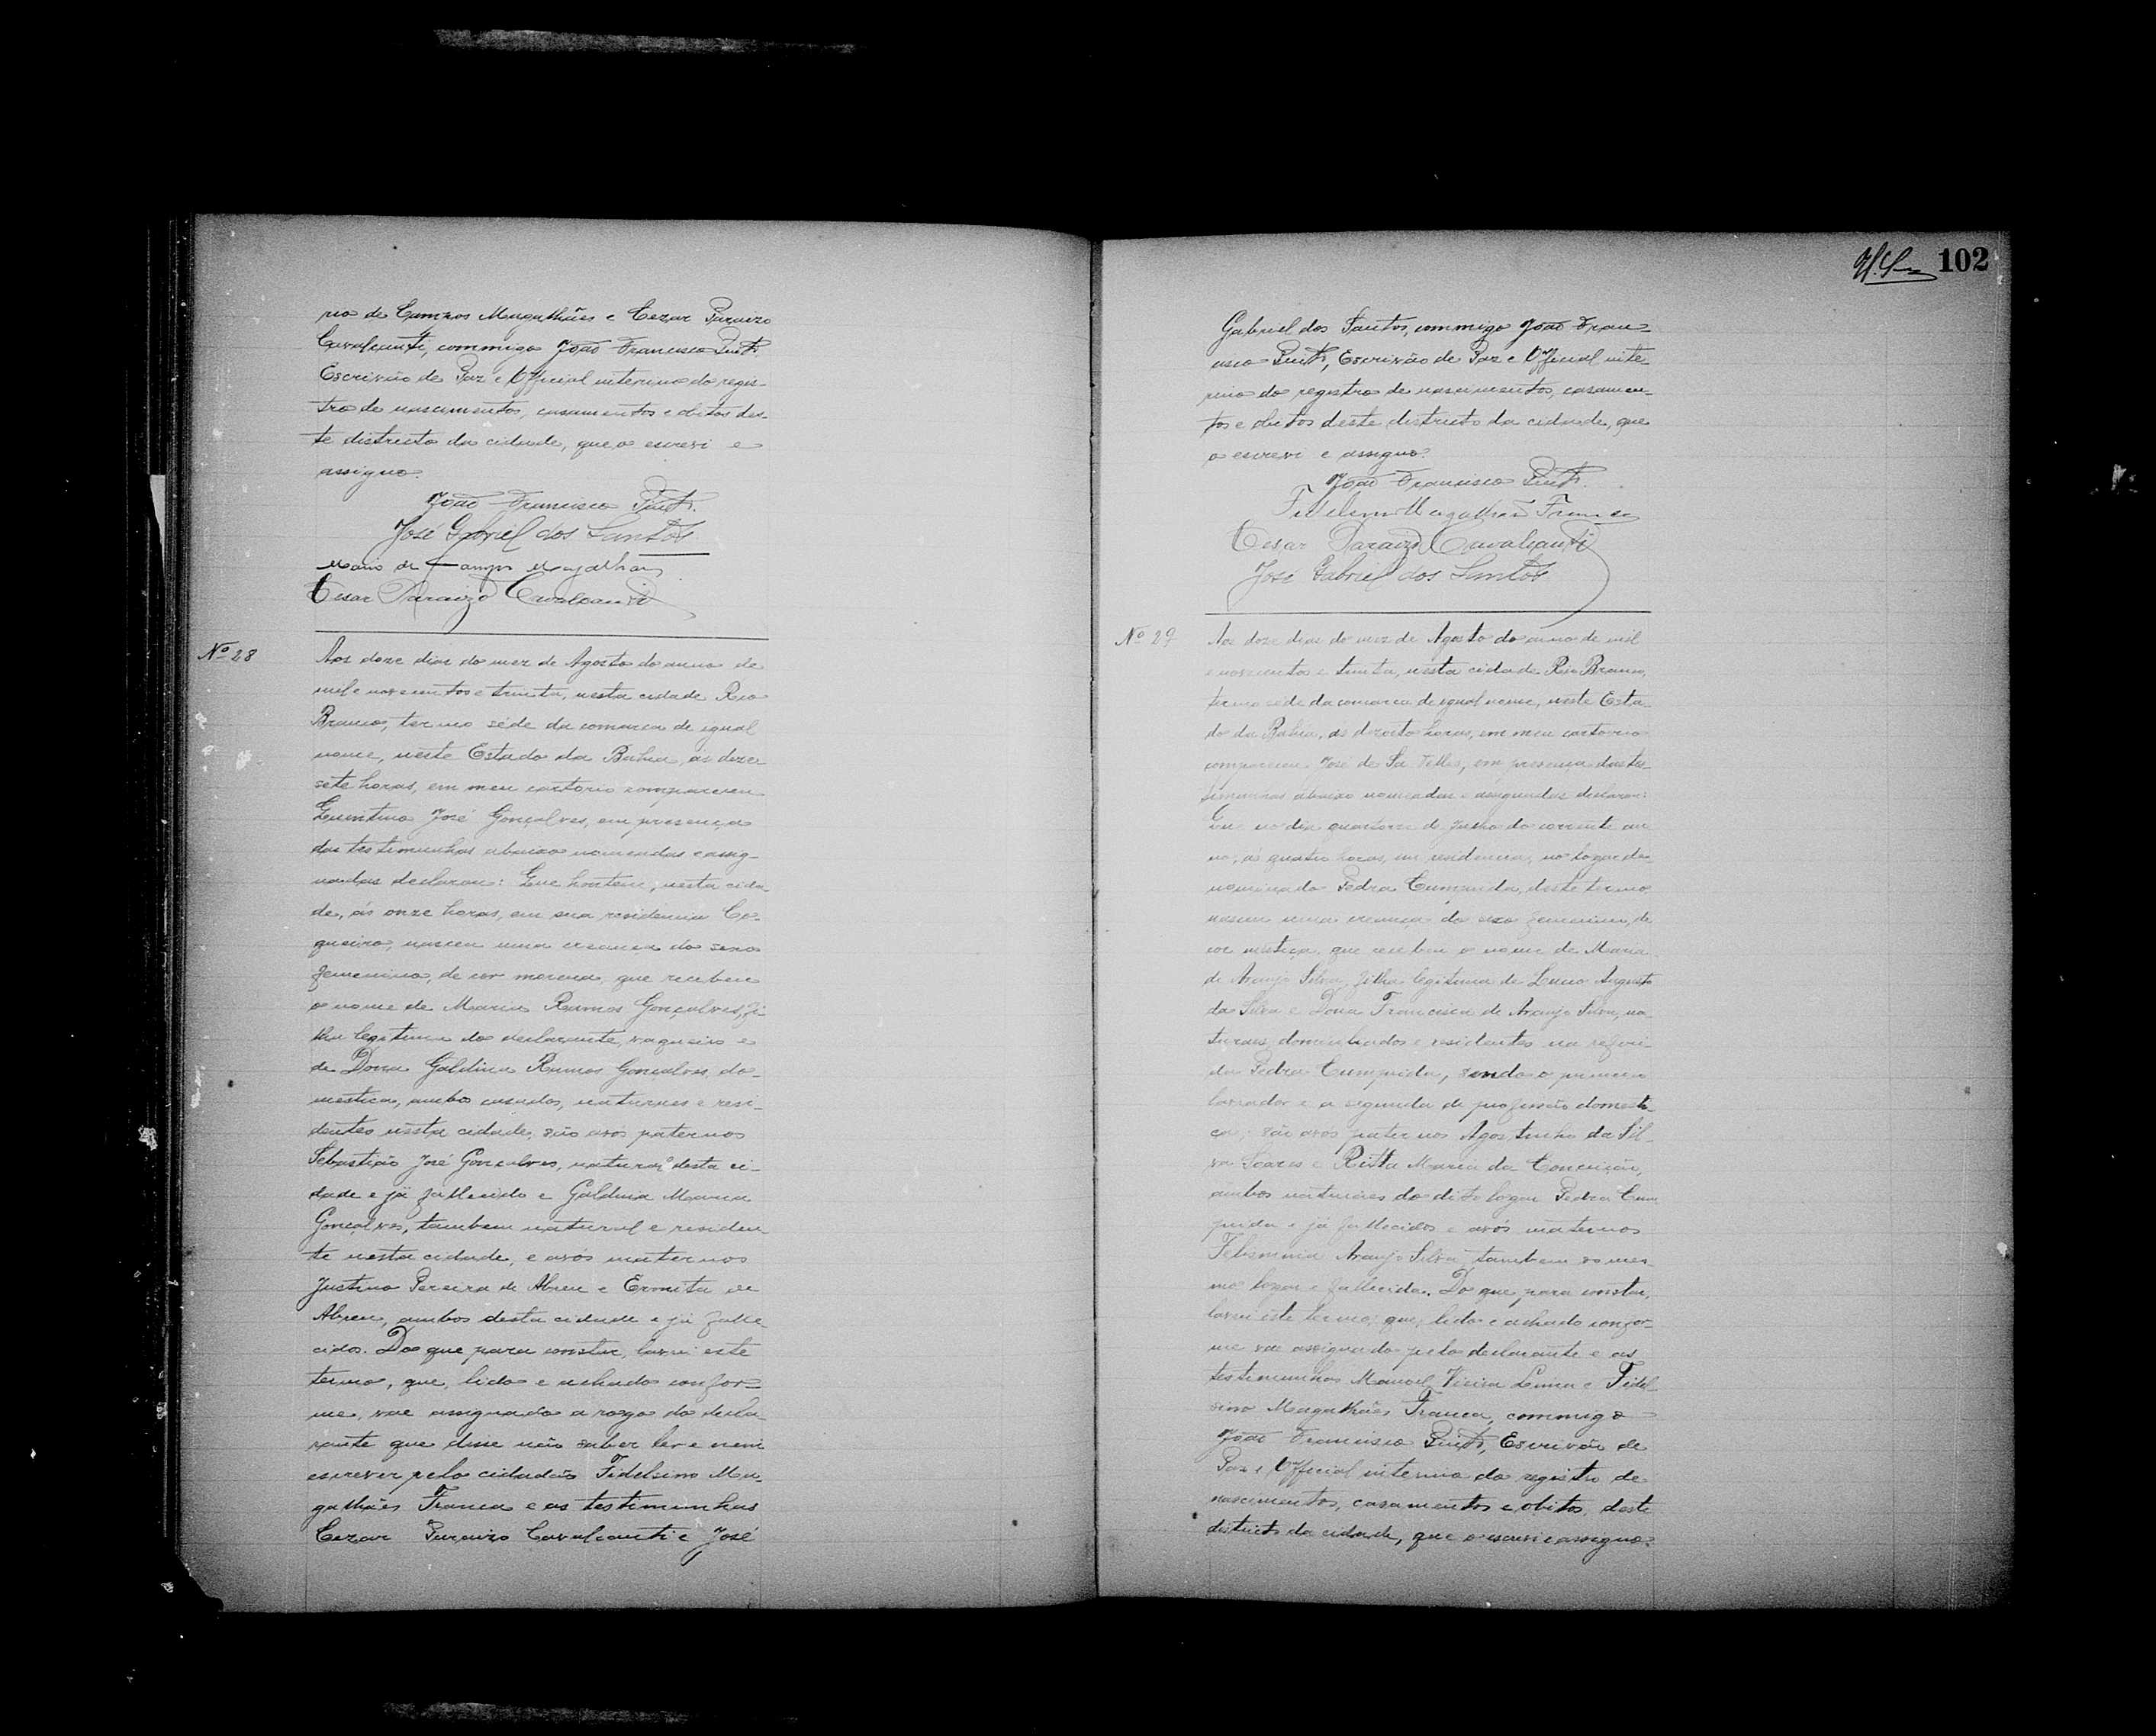 rio de Campos Magalhães e Cezar Paraizo
Cavalcanti, commigo João Francisco Pinto
Escrivão de Paz e Official interino do regis-
tro de nascimentos, casamentos e obitos des-
te districto da cidade, que o escrevi e
assigno.
João Francisco Pinto.
José Gabriel dos Santos
Mario de Campos Magalhães
Cesar Paraizo Cavalcanti
Nº 28
Aos doze dias do mez de Agosto do anno de
mil e novecentos e trinta, nesta cidade Rio
Branco, termo séde da comarca de igual
nome, neste Estado da Bahia, ás deze-
sete horas, em meu cartorio compareceu
Quintino José Gonçalves, em presença
das testimunhas abaixo nomeadas e assig-
nadas declarou: Que hontem, nesta cida-
de, ás onze horas, em sua residencia Co-
queiro, nasceu uma creança do sexo
femenino, de cor morena, que recebeu
o nome de Maria Ramos Gonçalves, fi-
lha legitima do declarante, vaqueiro e
de Dona Galdina Ramos Gonçalves, do-
mestica, ambos casados, naturaes e resi-
dentes nesta cidade, são avos paternos
Sebastião José Gonçalves, natural desta ci-
dade e já fallecido e Galdina Maria
Gonçalves, tambem natural e residen-
te nesta cidade, e avós maternos
Justino Pereira de Abreu e Ermita de
Abreu, ambos desta cidade e já falle-
cidos. Do que para constar, lavrei este
termo, que, lido e achado confor-
me, vae assignado a rogo do decla-
rante que disse não saber ler e nem
escrever pelo cidadão Fidelsino Ma-
galhães Franca e as testimunhas
Cezar Paraizo Cavalcanti e José
102
Gabriel dos Santos, commigo João Fran-
cisco Pinto, Escrivão de Paz e Official inte-
rino do registro de nascimentos, casamen-
tos e obitos deste districto da cidade, que
o escrevi e assigno.
João Francisco Pinto.
Fidelsino Magalhães Franca
Cesar Paraizo Cavalcanti
José Gabriel dos Santos
Nº 29
Aos doze dias do mez de Agosto do anno de mil
e novecentos e trinta, nesta cidade Rio Branco,
termo séde da comarca de igual nome, neste Esta-
do da Bahia, ás dezoito horas, em meu cartorio
compareceu José de Sá Telles, em presença das tes-
timunhas abaixo nomeadas e assignadas declarou:
Que no dia quatorze de Junho do corrente an-
no, ás quatro horas, em residencia, no logar de-
nominado Pedra Cumprida, deste termo
nasceu uma creança do sexo femenino, de
cor mestiça, que recebeu o nome de Maria
de Araujo Silva, filha legitima de Lucio Augusto
da Silva e Dona Francisca de Araujo Silva, na-
turaes, domiciliados e residentes na referi-
da Pedra Cumprida, sendo o primeiro
lavrador e a segunda de profissão domesti-
ca; são avós paternos Agostinho da Sil-
va Soares e Ritta Maria da Conceição,
ambos naturaes do dito logar Pedra Cum-
prida e já fallecidos e avós maternos
Felismina Araujo Silva tambem do mes-
mo logar e fallecida. Do que para constar,
lavrei este termo, que, lido e achado confor-
me vae assignado pelo declarante e as
testimunhas Manoel Vieira Lima e Fidel-
sino Magalhães Franca, commigo
João Francisco Pinto, Escrivão de
Paz e Official interino do registro de
nascimentos, casamentos e obitos, deste
districto da cidade, que o escrevi e assigno.